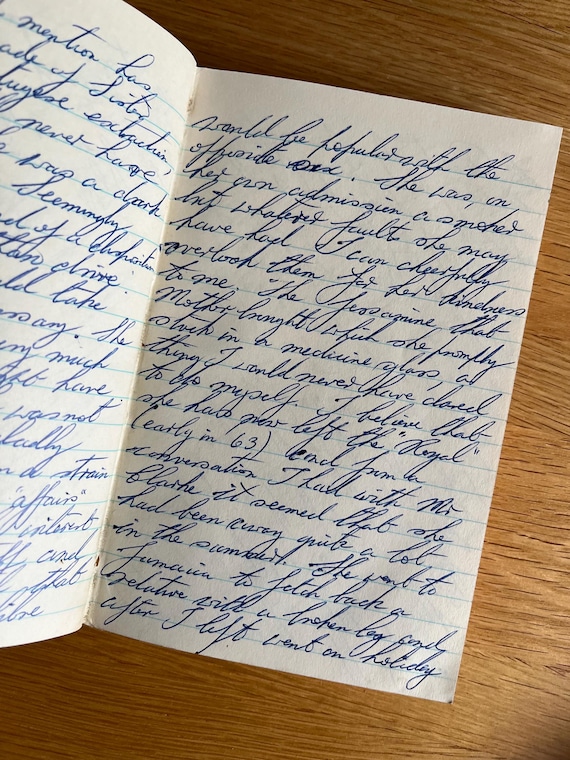 mention has
ade of Sister
tugese extraction,
never have
was a dark
Seemingly
d of a disposition
than once
ld take
ssary. She
ery much
ght have
was not
ically
n a strain
"affairs"
interest
ly and
that
ibre
would be popular with the
opposite sex. She was, on
her own admission a smoker
but whatever faults she may
have had I can cheerfully
overlook them for her kindness
to me. The Jessamine that
Mother brought which she promptly
stuck in a medicine glass, a
thing I would never have dared
to do myself. I believe that
she has now left the "Royal"
(early in 63) and from a
conversation I had with Mr
Blake it seemed that she
had been away quite a lot
in the summer. She went to
Jamaica to fetch back a
relative with a broken leg and
after I left went on holiday